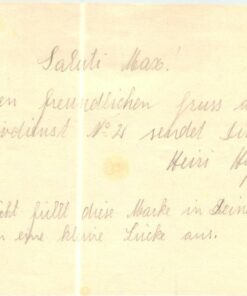 Saluti Max!
en freundlichen Gruss a
ivdienst No 21 sendet Di
Heiri H
cht füllt diese Marke in Deine
n eine kleine Lücke aus.